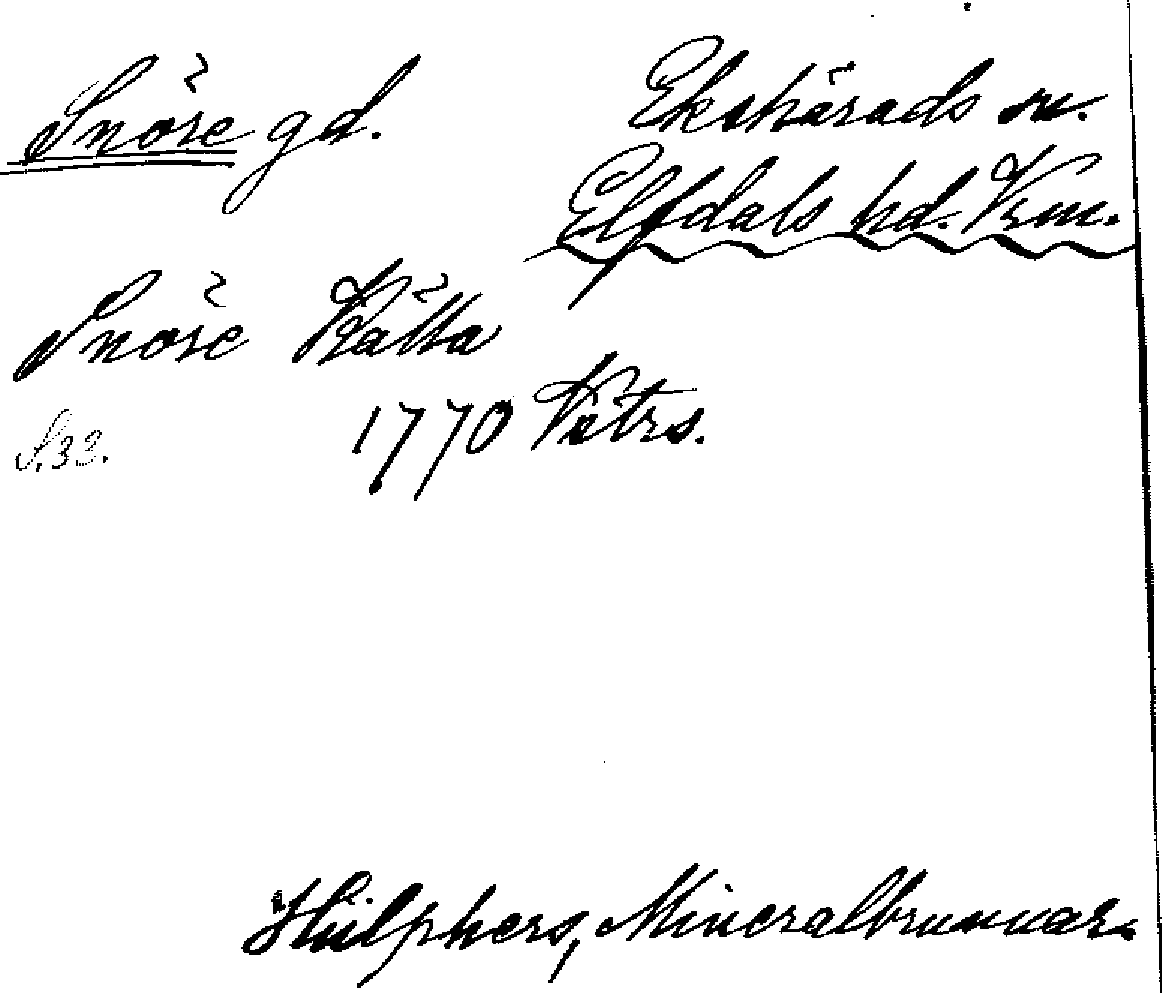 Snöre gd.
Ekshärads sn.
Elfdals hd. Vrm.
Snöre Källa
1770
S. 32.
Hülphers, Mineralbrunnar.